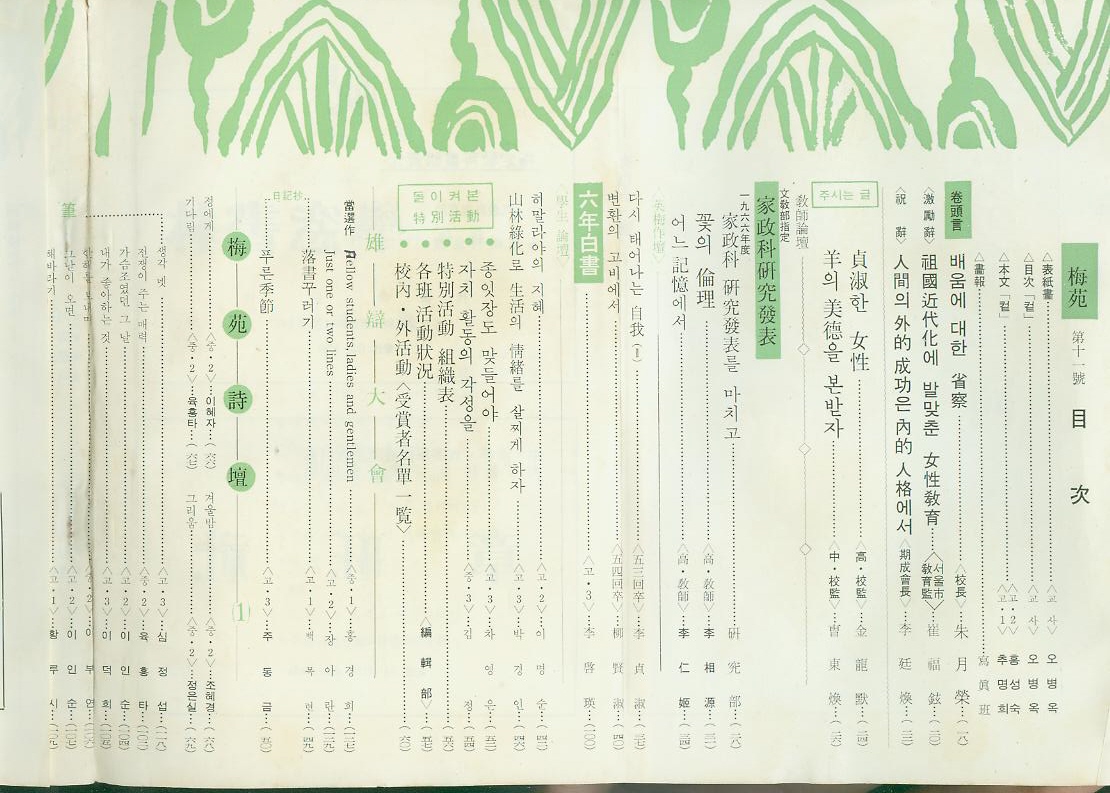 梅苑 第十一號 目次
表紙畵 〈고 사〉 오병옥
目次「컽」 〈고 사〉 오병옥
本文「컽」 〈고·2〉 홍성숙 〈고·1〉 추명희
畵報 寫眞班
卷頭言 배움에 대한 省察 〈校長〉 朱月榮 (一八)
〈激勵辭〉 祖國近代化에 발맞춘 女性敎育 〈서울市敎育監〉 崔福鉉 (二〇)
〈祝辭〉 人間의 外的 成功은 內的 人格에서 〈期成會長〉 李廷煥 (二二)
주시는 글
貞淑한 女性 〈高·校監〉 金龍默 (二四)
羊의 美德을 본받자 〈中·校監〉 曺東煥 (二六)
敎師論壇
文敎部指定
家政科硏究發表
一九六六年度
家政科 硏究發表를 마치고 硏究部 (二八)
꽃의 倫理 〈高·敎師〉 李相源 (三一)
어느 記憶에서 〈高·敎師〉 李仁姬 (三四)
다시 태어나는 自我(1) 〈五三回卒〉 李貞淑
변환의 고비에서 〈五四回卒〉 柳賢淑 (四〇)
六年白書 〈고·3〉 李啓瑛 (一〇〇)
學生論壇
히말라야의 지혜 〈고·2〉 이명순 (四二)
山林綠化로 生活의 情緖를 살찌게 하자 〈고·3〉 박경인 (四六)
돌이켜본 特別活動
종잇장도 맞들어야 〈고·3〉 차영은 (五二)
자치 활동의 각성을 〈중·3〉 김정 (五四)
特別活動 組織表 (五六)
各班 活動狀況 〈編輯部〉 (五七)
校內·外活動〈受賞者名單一覧〉 (六〇)
雄辯大會
當選作 Fellow students, ladies and gentlemen 〈중·1〉 홍경희 (一二七)
Just one or two lines 〈고·2〉 장아란 (一二九)
日記抄
落書꾸러기 〈고·1〉 백목현 (四九)
푸른季節 〈고·3〉 주동금 (五〇)
梅苑詩壇 (1)
정에게 〈중·2〉 이혜자 (六六)
겨울밤 〈중·2〉 조혜경 (六八)
기다림 〈중·2〉 육홍타 (六七)
그리움 〈중·2〉 정은실 (六九)
筆
생각 넷 〈고·3〉 심정섭 (一〇一)
전쟁이 주는 매력 〈중·2〉 육홍타 (一〇二)
가슴조였던 그 날 〈고·2〉 이인순 (一〇四)
내가 좋아하는 것 〈고·3〉 이덕희 (一〇五)
한해를 보내며 〈중·2〉
그날이 오면 〈고·2〉 이인순 (一〇七)
해바라기 〈고·1〉 함루시 (一〇九)